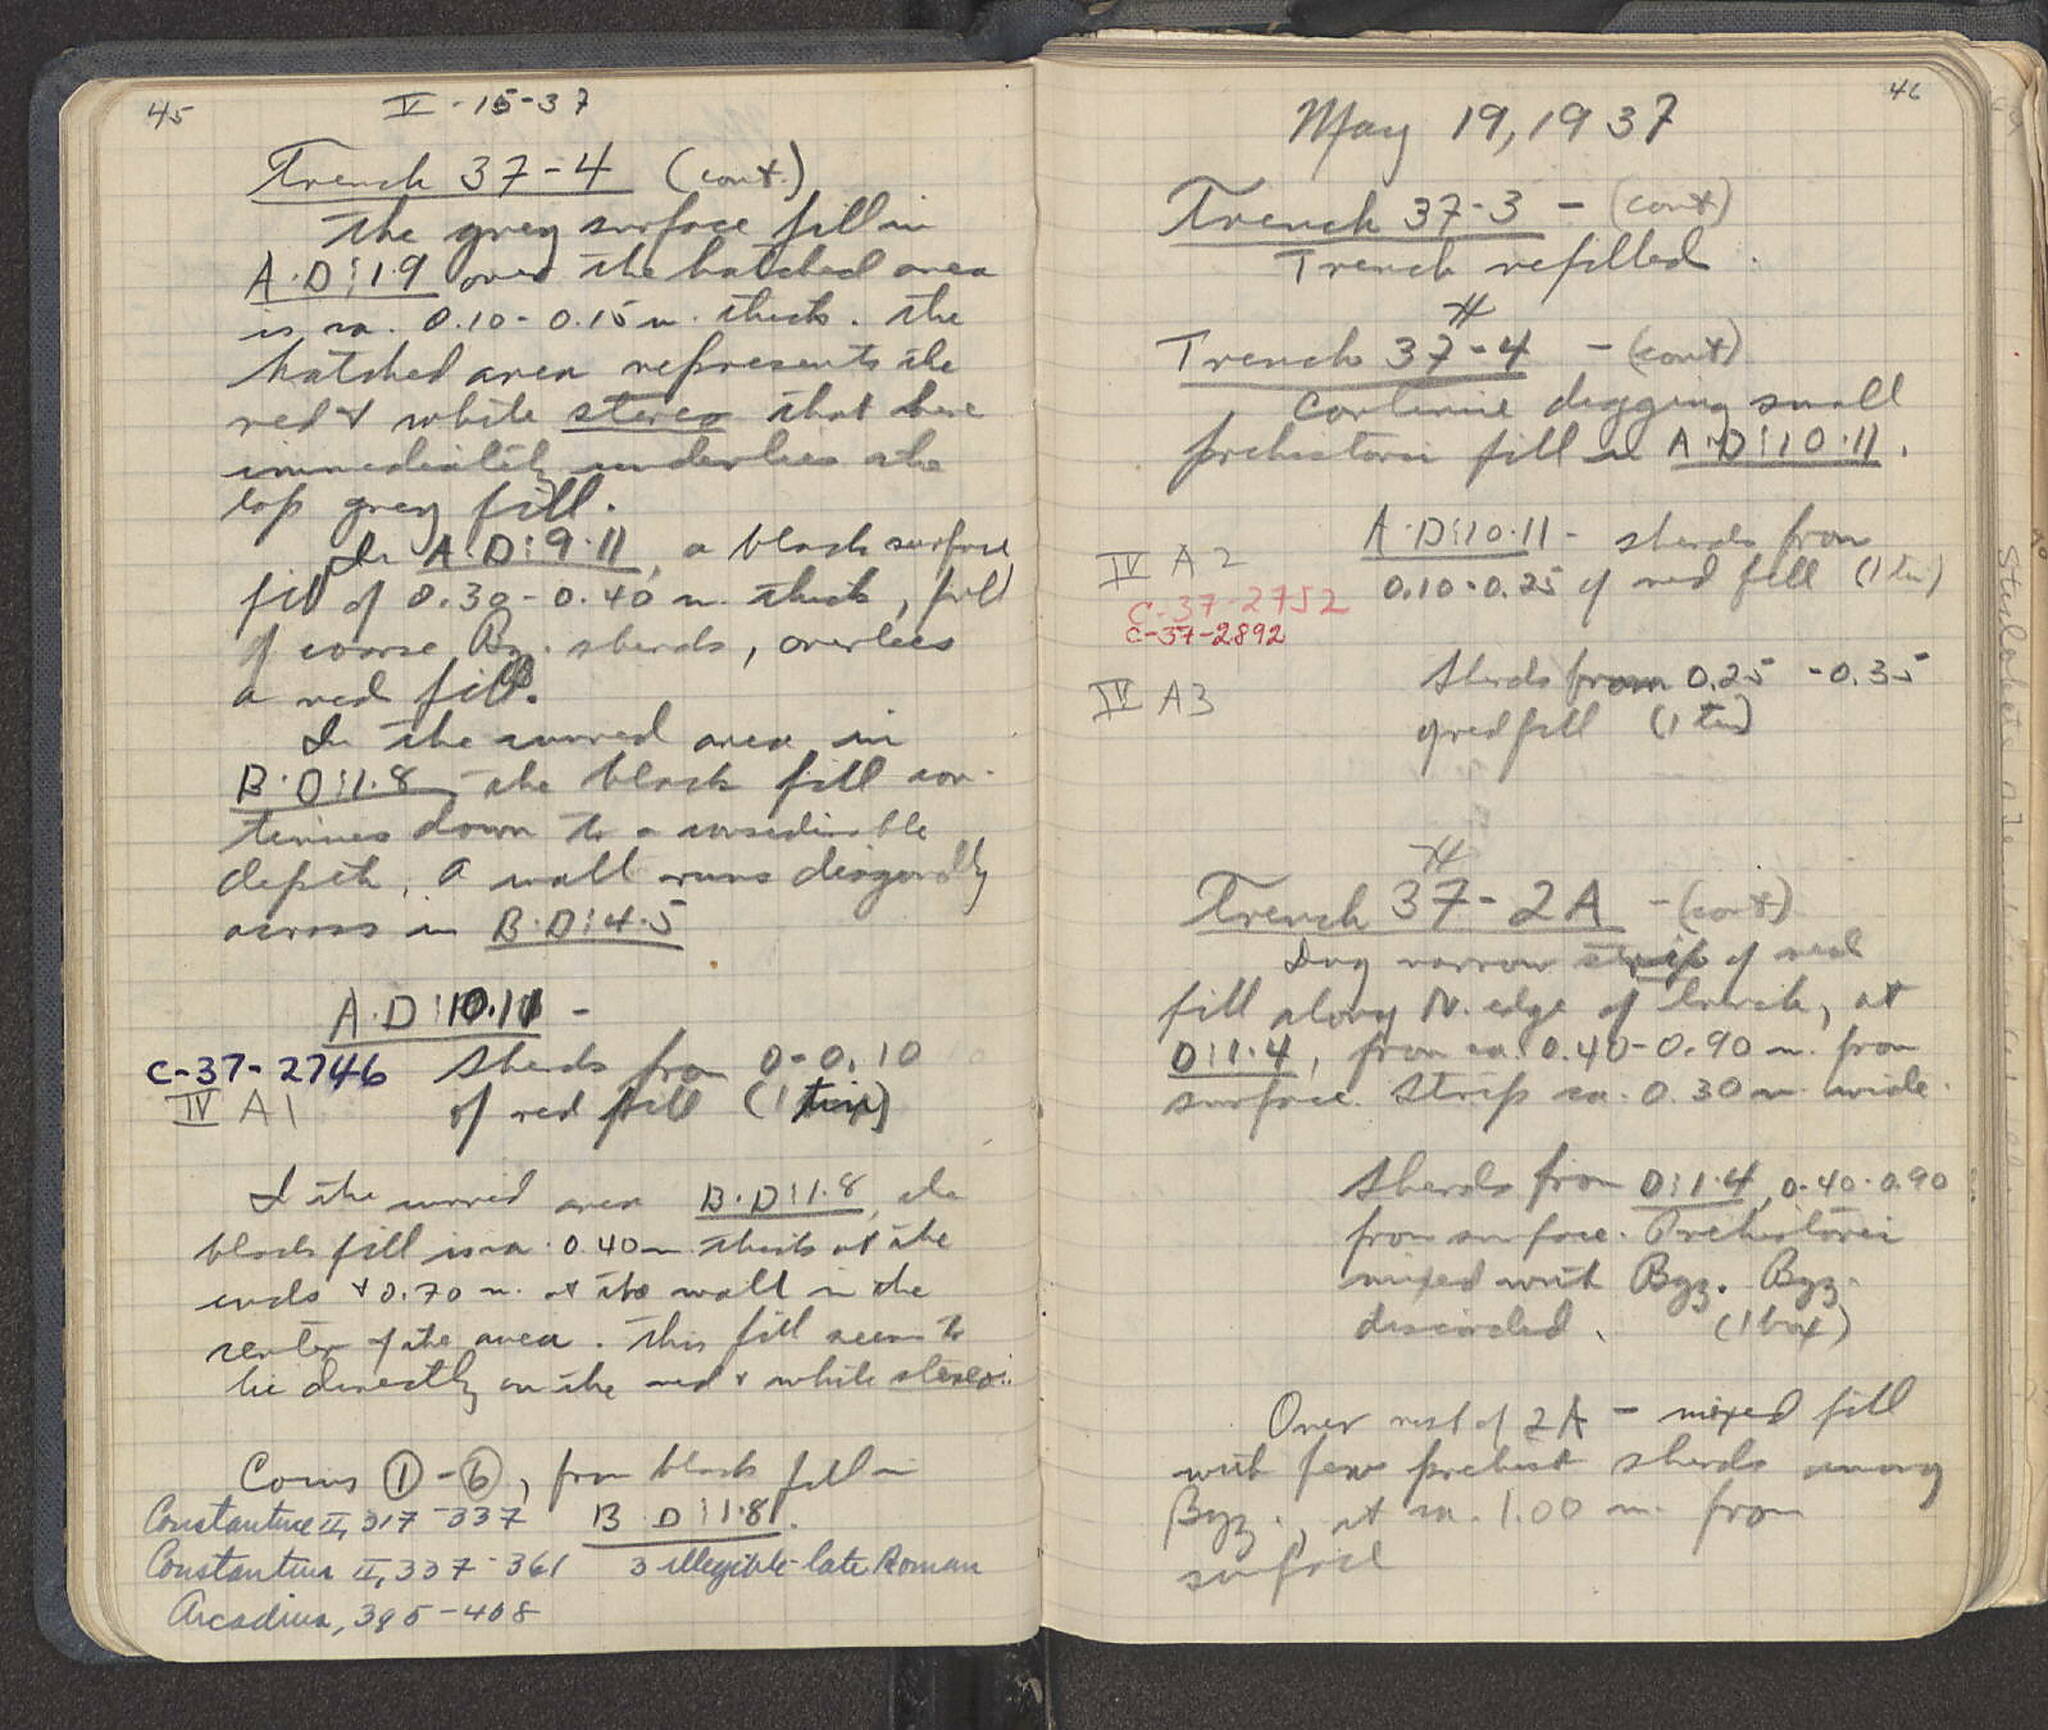 45
V-15-37
Trench 37-4 (cont.)
The grey surface fill in
A·D:1·9 over the hatched area
is ca. 0.10-0.15 m. thick. The
hatched area represents the
red & white stereo that here
immediately underlies the
top grey fill.
In A·D:9·11, a black surface
fill of 0.30-0.40 m. thick, full
of coarse Byz. sherds, overlies
a red fill.
In the area in
B·D:1·8 the black fill con-
tinues down to a considerable
depth. A wall runs diagonally
across in B·D:4·5
A·D:10·11 -
C-37-2746 Sherds from 0-0.10
IV A1 of red fill (1 tin)
In the area B·D:1·8, the
black fill is ca. 0.40 m thick at the
ends & 0.70 m. at the wall in the
center of the area. This fill seems to
lie directly on the red & white stereo.
Coins ①-⑥, from black fill in
Constantine II, 317-337 B D:1·8.
Constantius II, 337-361 3 illegible-late Roman
Arcadius, 395-408
46
May 19, 1937
Trench 37-3 - (cont)
Trench refilled.
Trench 37-4 - (cont)
Continue digging small
prehistoric fill in A·D:10·11.
A·D:10·11 - sherds from
IV A2
0.10-0.25 of red fill (1 tin)
C-37-2752
C-37-2892
Sherds from 0.25 -0.35
IV A3
of red fill (1 tin)
Trench 37-2A - (cont)
Dug narrow strip of red
fill along N. edge of trench, at
D:1·4, from ca. 0.40-0.90 m. from
surface. Strip ca. 0.30 m. wide.
Sherds from D:1·4, 0.40-0.90
from surface. Prehistoric
mixed with Byz. Byz.
discarded. (1 box)
Over rest of 2A - mixed fill
with few prehist sherds among
Byz., at ca. 1.00 m. from
surface